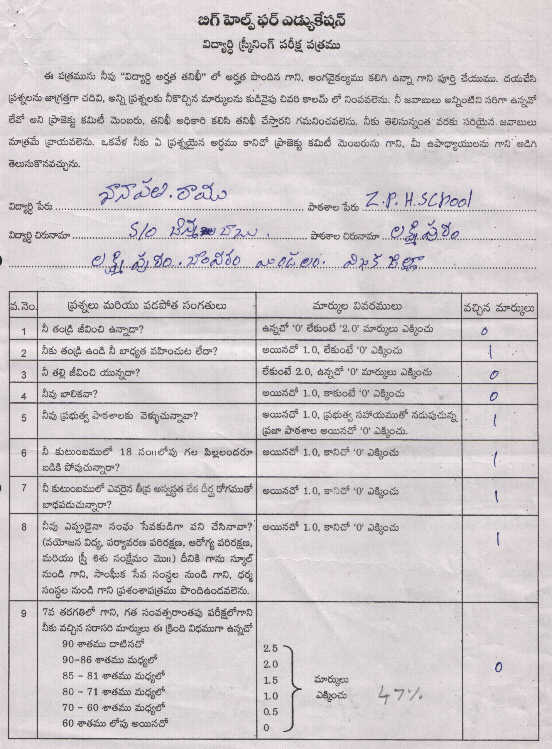 బిగ్ హెల్ప్ ఫర్ ఎడ్యుకేషన్
విద్యార్థి స్క్రీనింగ్ పరీక్ష పత్రము
ఈ పత్రమును నీవు "విద్యార్థి అర్హత తనిఖీ" లో అర్హత పొందిన గాని, అంగవైకల్యము కలిగి ఉన్నా గాని పూర్తి చేయుము. దయచేసి
ప్రశ్నలను జాగ్రత్తగా చదివి, అన్ని ప్రశ్నలకు నీకొచ్చిన మార్కులను కుడివైపు చివరి కాలమ్ లో నింపవలెను. నీ జవాబులు అన్నింటిని సరిగా ఉన్నవో
లేవో అని ప్రాజెక్టు కమిటీ మెంబరు, తనిఖీ అధికారి కలిసి తనిఖీ చేస్తారని గమనించవలెను. నీకు తెలిసున్నంత వరకు సరియైన జవాబులు
మాత్రమే వ్రాయవలెను. ఒకవేళ నీకు ఏ ప్రశ్నయైన అర్థము కానిచో ప్రాజెక్టు కమిటీ మెంబరును గాని, మీ ఉపాధ్యాయులను గాని అడిగి
తెలుసుకొనవచ్చును.
విద్యార్థి పేరు ఖానాపతి. రాము పాఠశాల పేరు Z.P.H.SCHOOL
విద్యార్థి చిరునామా S/O పాఠశాల చిరునామా లక్ష్మీపురం
లక్ష్మీపురం. మండలం. విశాఖ జిల్లా
వ.నెం. ప్రశ్నలు మరియు వడపోత సంగతులు మార్కుల వివరములు వచ్చిన మార్కులు
1 నీ తండ్రి జీవించి ఉన్నాడా? ఉన్నచో '0' లేకుంటే '2.0' మార్కులు ఎక్కించు 0
2 నీకు తండ్రి ఉండి నీ బాధ్యత వహించుట లేదా? అయినచో 1.0, లేకుంటే '0' ఎక్కించు 1
3 నీ తల్లి జీవించి యున్నదా? లేకుంటే 2.0, ఉన్నచో '0' మార్కులు ఎక్కించు 0
4 నీవు బాలికవా? అయినచో 1.0, కాకుంటే '0' ఎక్కించు 0
5 నీవు ప్రభుత్వ పాఠశాలకు వెళ్ళుచున్నావా? అయినచో 1.0, ప్రభుత్వ సహాయముతో నడుపుచున్న 1
ప్రజా పాఠశాల అయినచో '0' ఎక్కించు.
6 నీ కుటుంబములో 18 సం॥లోపు గల పిల్లలందరూ అయినచో 1.0, కానిచో '0' ఎక్కించు 1
బడికి పోవుచున్నారా?
7 నీ కుటుంబములో ఎవరైన తీవ్ర అస్వస్థత లేక దీర్ఘ రోగముతో అయినచో 1.0, కానిచో '0' ఎక్కించు 1
బాధపడుచున్నారా?
8 నీవు ఎప్పుడైనా సంఘ సేవకుడిగా పని చేసినావా? అయినచో 1.0, కానిచో '0' ఎక్కించు 1
(వయోజన విద్య, పర్యావరణ పరిరక్షణ, ఆరోగ్య పరిరక్షణ,
మరియు స్త్రీ శిశు సంక్షేమం మొ॥) దీనికి గాను స్కూల్
నుండి గాని, సాంఘీక సేవ సంస్థల నుండి గాని, ధర్మ
సంస్థల నుండి గాని ప్రశంశాపత్రము పొందిఉండవలెను.
9 7వ తరగతిలో గాని, గత సంవత్సరాంతపు పరీక్షలోగాని
నీకు వచ్చిన సరాసరి మార్కులు ఈ క్రింది విధముగా ఉన్నచో
90 శాతము దాటినచో 2.5
90-86 శాతము మధ్యలో 2.0
85 - 81 శాతము మధ్యలో 1.5 మార్కులు 0
80 - 71 శాతము మధ్యలో 1.0 ఎక్కించు 47%
70 - 60 శాతము మధ్యలో 0.5
60 శాతము లోపు అయినచో 0